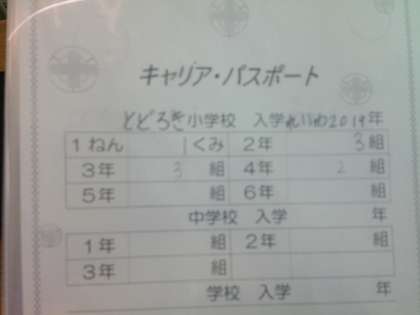 キャリア・パスポート
とどろき小学校 入学れいわ2019年
1ねん 1くみ 2年 3組
3年 3組 4年 2組
5年 組 6年 組
中学校 入学 年
1年 組 2年 組
3年 組
学校 入学 年